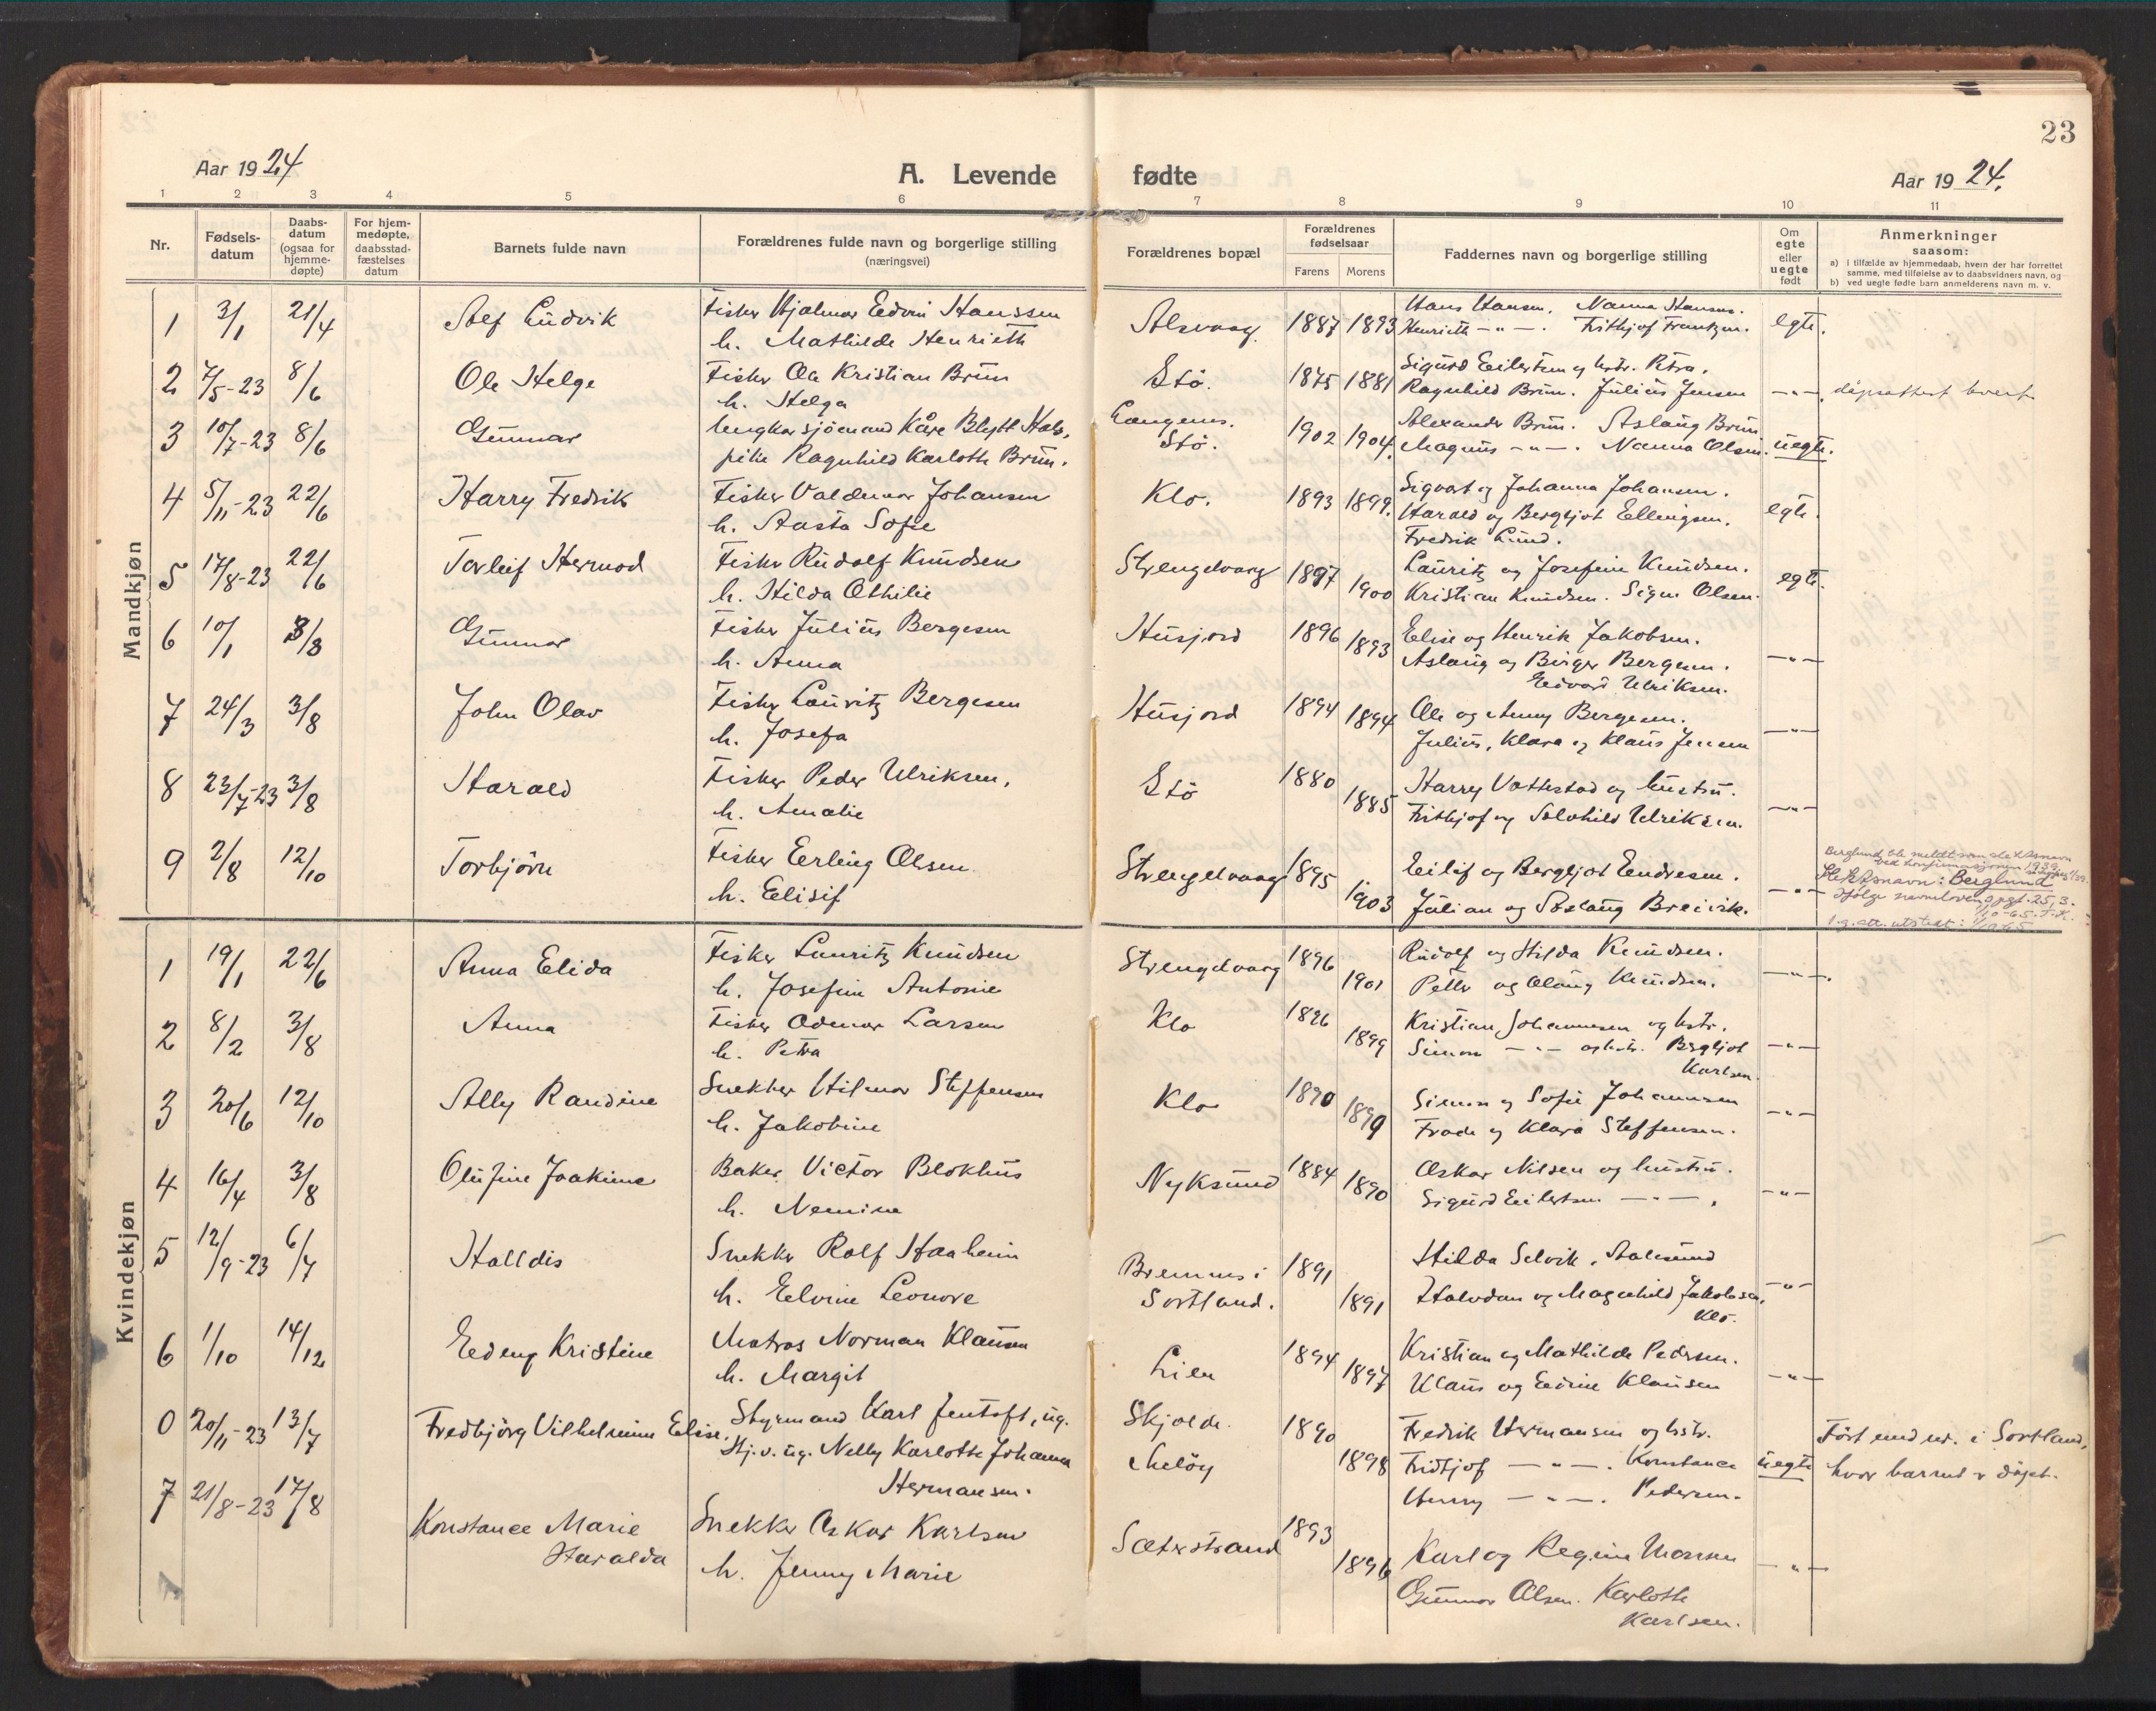 23
Aar 1924
A. Levende fødte
Aar 1924.
1 2 3 4 5 6 7 8 9 10 11
Nr. Fødselsdatum Daabsdatum (ogsaa for hjemmedøpte) For hjemmedøpte, daabsstadfæstelses datum Barnets fulde navn Forældrenes fulde navn og borgerlige stilling (næringsvei) Forældrenes bopæl Forældrenes fødselsaar Farens Morens Faddernes navn og borgerlige stilling Om egte eller uegte født Anmerkninger saasom:
a) i tilfælde av hjemmedaab, hvem der har forrettet samme, med tilføielse av to daabsvidners navn, og
b) ved uegte fødte barn anmelderens navn m. v.
Mandkjøn
1 3/1 21/4 Alf Ludvik Fisker Hjalmar Edvin Hanssen Alsvaag. 1887 1893 Hans Hansen. Nanna Hansen. egte.
h. Mathilde Henriette Henriette -"-. Frithjof Frantzen.
2 7/5-23 8/6 Ole Helge Fisker Ole Kristian Brun Stö. 1875 1881 Sigurd Eilertsen og hstr. Petra. -"-
h. Helga Ragnhild Brun. Julius Jensen
3 10/7-23 8/6 Gunnar Ungkar sjömand Kåre Blytt Hals, Langenes. 1902 1904. Alexander Brun. Aslaug Brun uegte.
pike Ragnhild Karlotte Brun. Stö. Magnus -"-. Nanna Olsen.
4 5/11-23 22/6 Harry Fredrik Fisker Valdemar Johansen Klo. 1893 1899. Sigvart og Johanna Johansen. egte.
h. Aasta Sofie Harald og Bergljot Ellingsen.
Fredrik Lund.
5 17/8-23 22/6 Torleif Hermod Fisker Rudolf Knudsen Strengelvaag 1897 1900 Lauritz og Josefine Knudsen. egte.
h. Hilda Othilie Kristian Knudsen. Signe Olsen.
6 10/1 3/8 Gunnar Fisker Julius Bergesen Husjord 1896 1893 Elise og Henrik Jakobsen. -"-
h. Anna Aslaug og Birger Bergesen.
Edvard Ulriksen.
7 24/3 3/8 John Olav Fisker Lauritz Bergesen Husjord 1894 1894 Ole og Anny Bergesen. -"-
h. Josefa Julius, Klara og Klaus Jensen
8 23/7-23 3/8 Harald Fisker Peder Ulriksen, Stö 1880 1885 Harry Vottestad og hustru. -"-
h. Amalie Frithjof og Solvhild Ulriksen.
9 2/8 12/10 Torbjörn Fisker Erling Olsen Strengelvaag 1895 1903 Eilif og Bergljot Endresen. -"-
h. Elisif Julian og Aslaug Breivik.
Berglund ble meldt som slektsnavn
ved konfirmasjonen 1939
Slektsnavn: Berglund
ifølge navneloven, pgf. 25, 3.
Kvindekjøn
1 19/1 22/6 Anna Elida Fisker Lauritz Knudsen Strengelvaag 1896 1901 Rudolf og Hilda Knudsen. -"-.
h. Josefine Antonie Petter og Olaug Knudsen.
2 8/2 3/8 Anna Fisker Odemar Larsen Klo 1896 1899 Kristian Johannesen og hstr. -"-
h. Petra Simon -"- og hstr. Bergljot
Karlsen.
3 20/6 12/10 Ally Randine Snekker Hilmar Steffensen Klo 1890 1899 Simon og Sofie Johannesen -"-
h. Jakobine Frode og Klara Steffensen.
4 16/4 3/8 Olufine Joakime Baker Victor Blokhus Nyksund 1884 1890 Oskar Nilsen og hustru. -"-
h. Nemine Sigurd Eilertsen -"-.
5 12/9-23 6/7 Halldis Snekker Rolf Haaheim Bremnes i 1891 1891 Hilda Selvik, Aalesund -"-
h. Elvine Leonore Sortland. Halvdan og Magnhild Jakobsen,
Klo.
6 1/10 14/12 Edeny Kristine Matros Norman Klausen Lien 1894 1897 Kristian og Mathilde Pedersen. -"-
h. Margit Klaus og Edine Klausen
0 20/11-23 13/7 Fredbjörg Vilhelmine Elise. Styrmand Karl Jentoft, ug. Skjolde. 1890 1898 Fredrik Hermansen og hstr. uegte Fört under nr. i Sortland,
Stj. v. ug. Nelly Karlotte Johanna Melöy Fridtjof -"-. Konstance hvor barnet er döpt.
Hermansen. Henny -"-. Pedersen.
7 21/8-23 17/8 Konstance Marie Snekker Oskar Karlsen Sæterstrand 1893 1896 Karl og Regine Monsen -"-
Haralda h. Jenny Marie Gunnar Olsen. Karlotte
Karlsen.